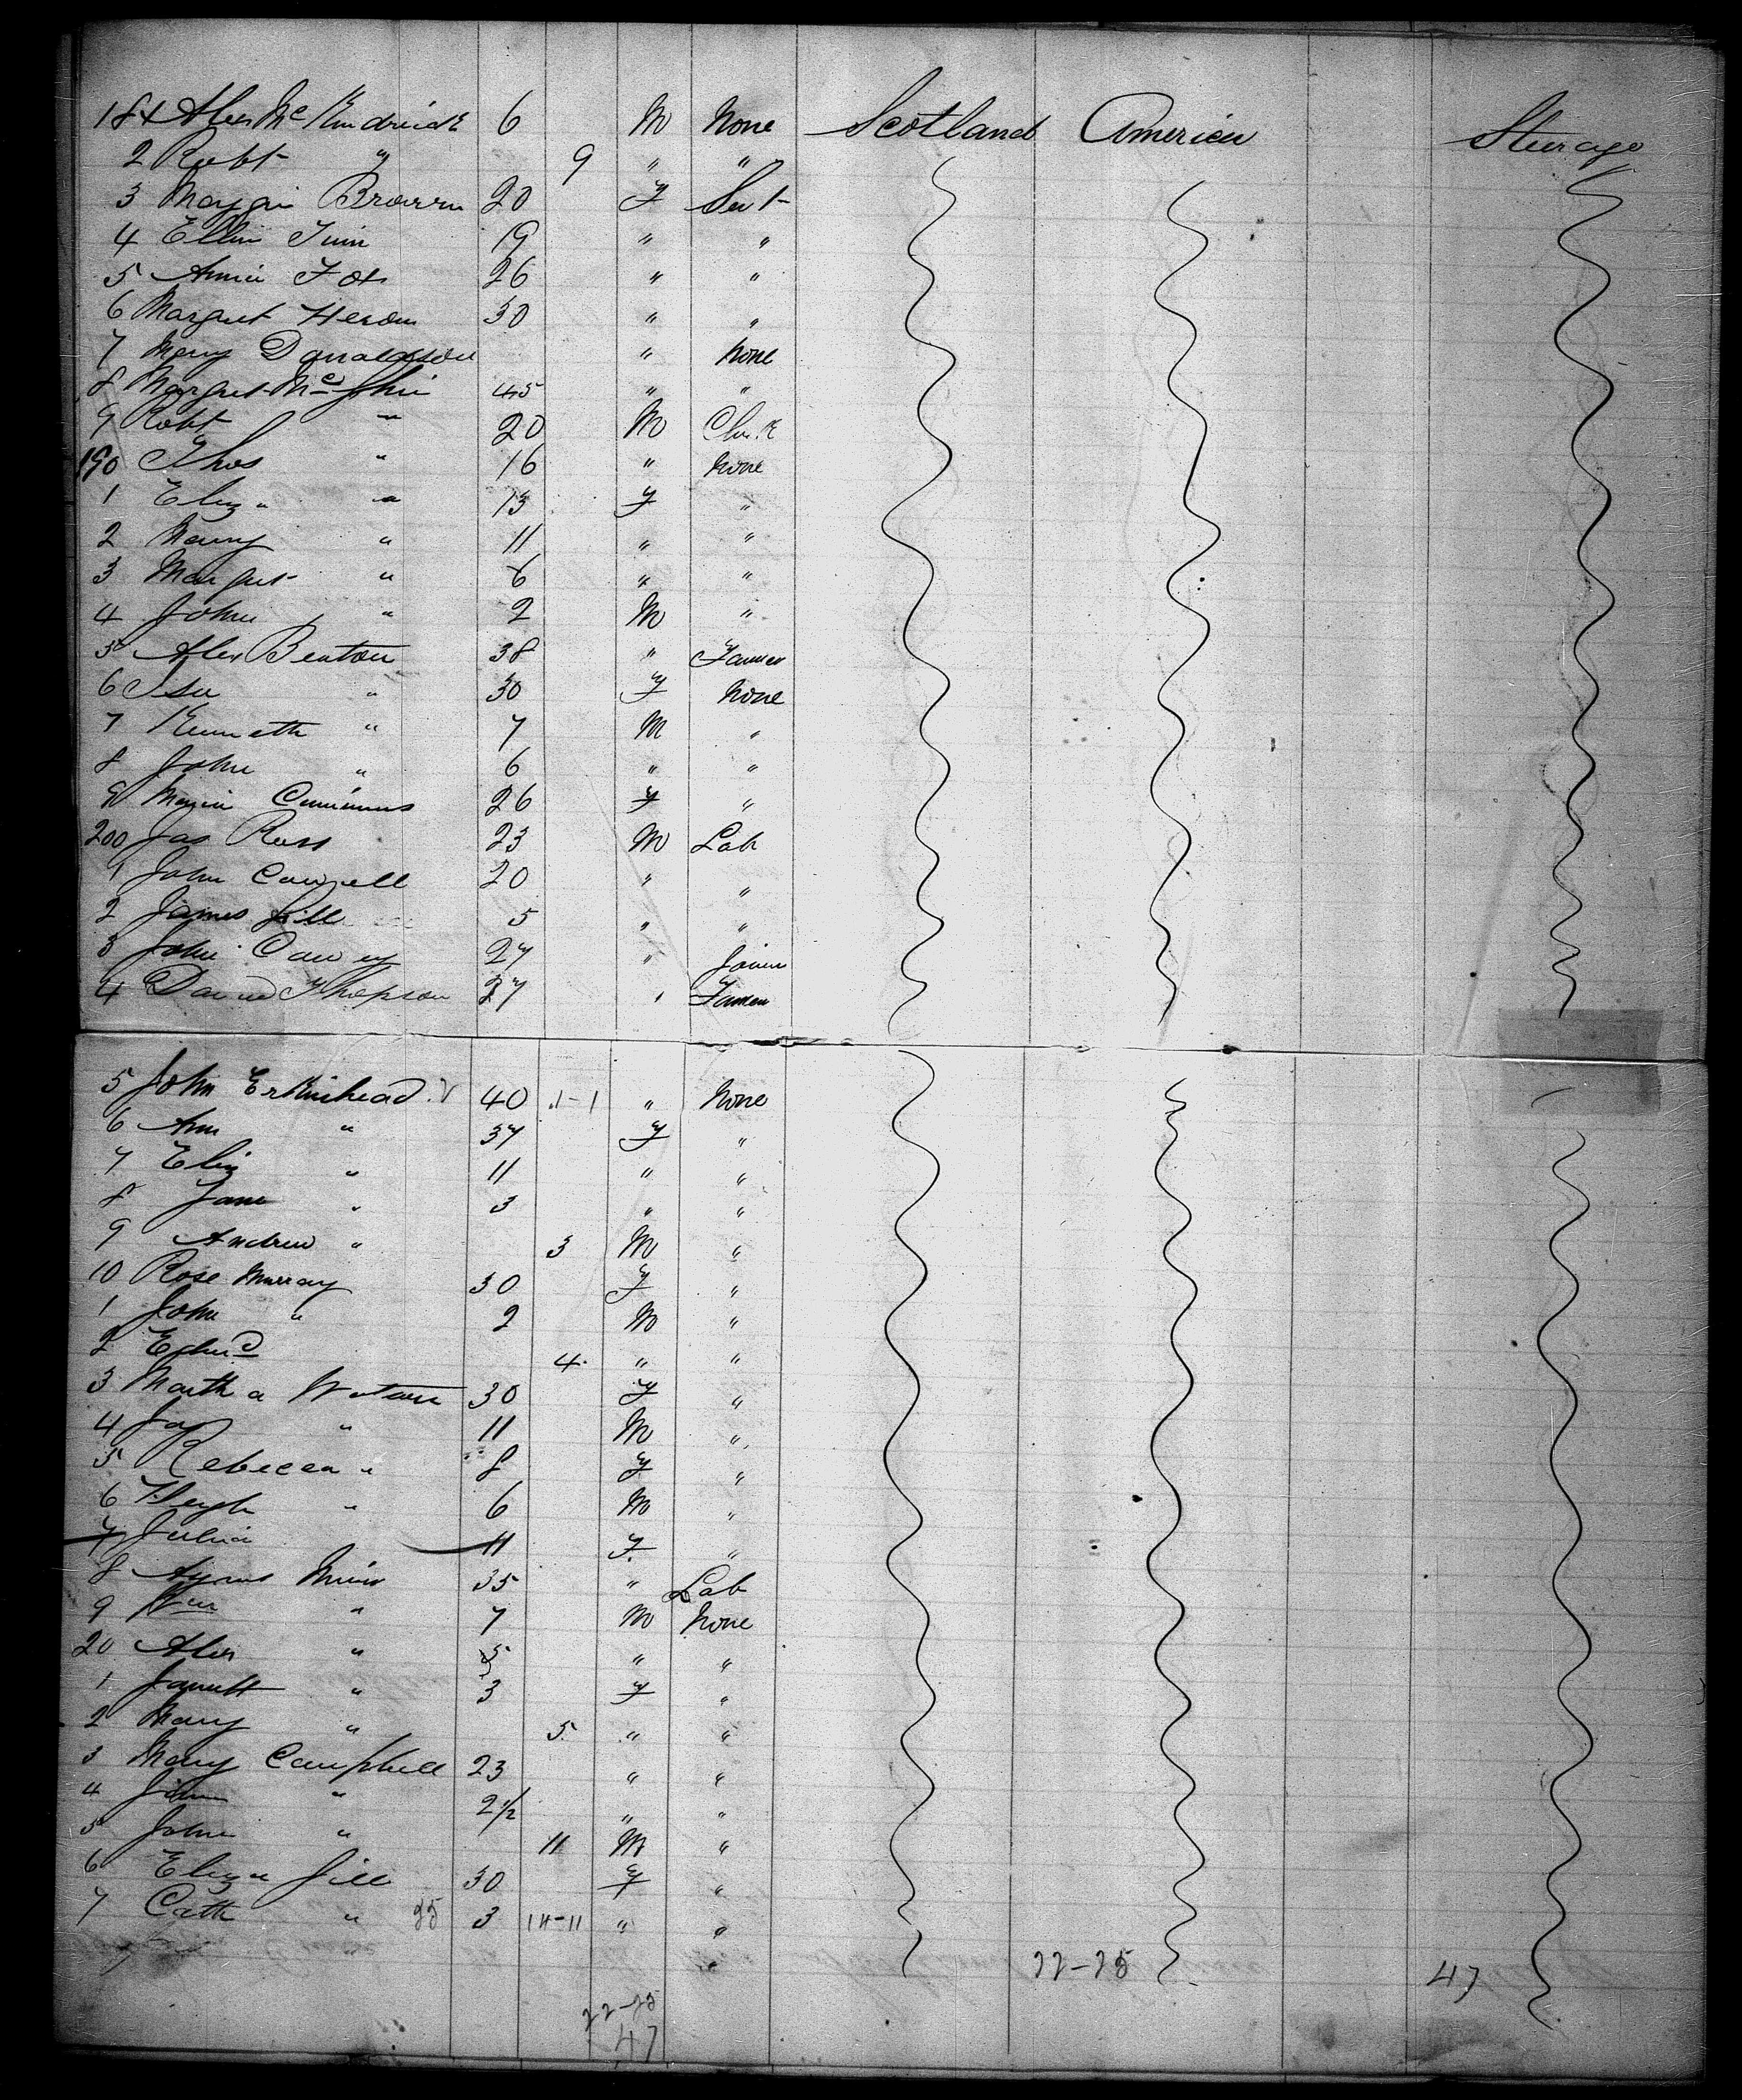 181 Alex McKendrick 6 M None Scotland America Steerage
2 Robt " 9 " "
3 Maggie Brown 20 F Set
4 Ellen 19 " "
5 Annie Fox 26 " "
6 Margret Heron 30 " "
7 Mary Donaldson " None
8 Margret 45 " "
9 Robt " 20 M Clerk
190 Thos " 16 " None
1 Eliza " 13 F "
2 Mary " 11 " "
3 Margret " 6 " "
4 John " 2 M "
5 Alex Benton 38 " Farmer
6 Isa " 30 F None
7 Kenneth " 7 M "
8 John " 6 " "
9 Cummins 26 F "
200 Jas Ross 23 M Lab
1 John 20 " "
2 James Gill 5 " "
3 John 27 " Joiner
4 David Thopson 27 " Farmer
5 John Erkinhead 40 1-1 " None
6 Ann " 37 F "
7 Eliz " 11 " "
8 Jane " 3 " "
9 Andrew " 3 M "
10 Rose Murray 30 F "
1 John " 2 M "
2 Edwd 4 " "
3 Martha Watson 30 F "
4 Jas " 11 M "
5 Rebecca " 8 F "
6 Hugh " 6 M "
7 Julia 11 F "
8 Agnus Muir 35 " Lab
9 Wm " 7 M None
20 Alex " 5 " "
1 Janett " 3 F "
2 Mary " 5 " "
3 Mary Campbell 23 " "
4 " 2 1/2 " "
5 John " 11 M "
6 Eliza Gill 30 F "
7 Cath " 25 3 14-11 " "
22-25 47
22-25
47